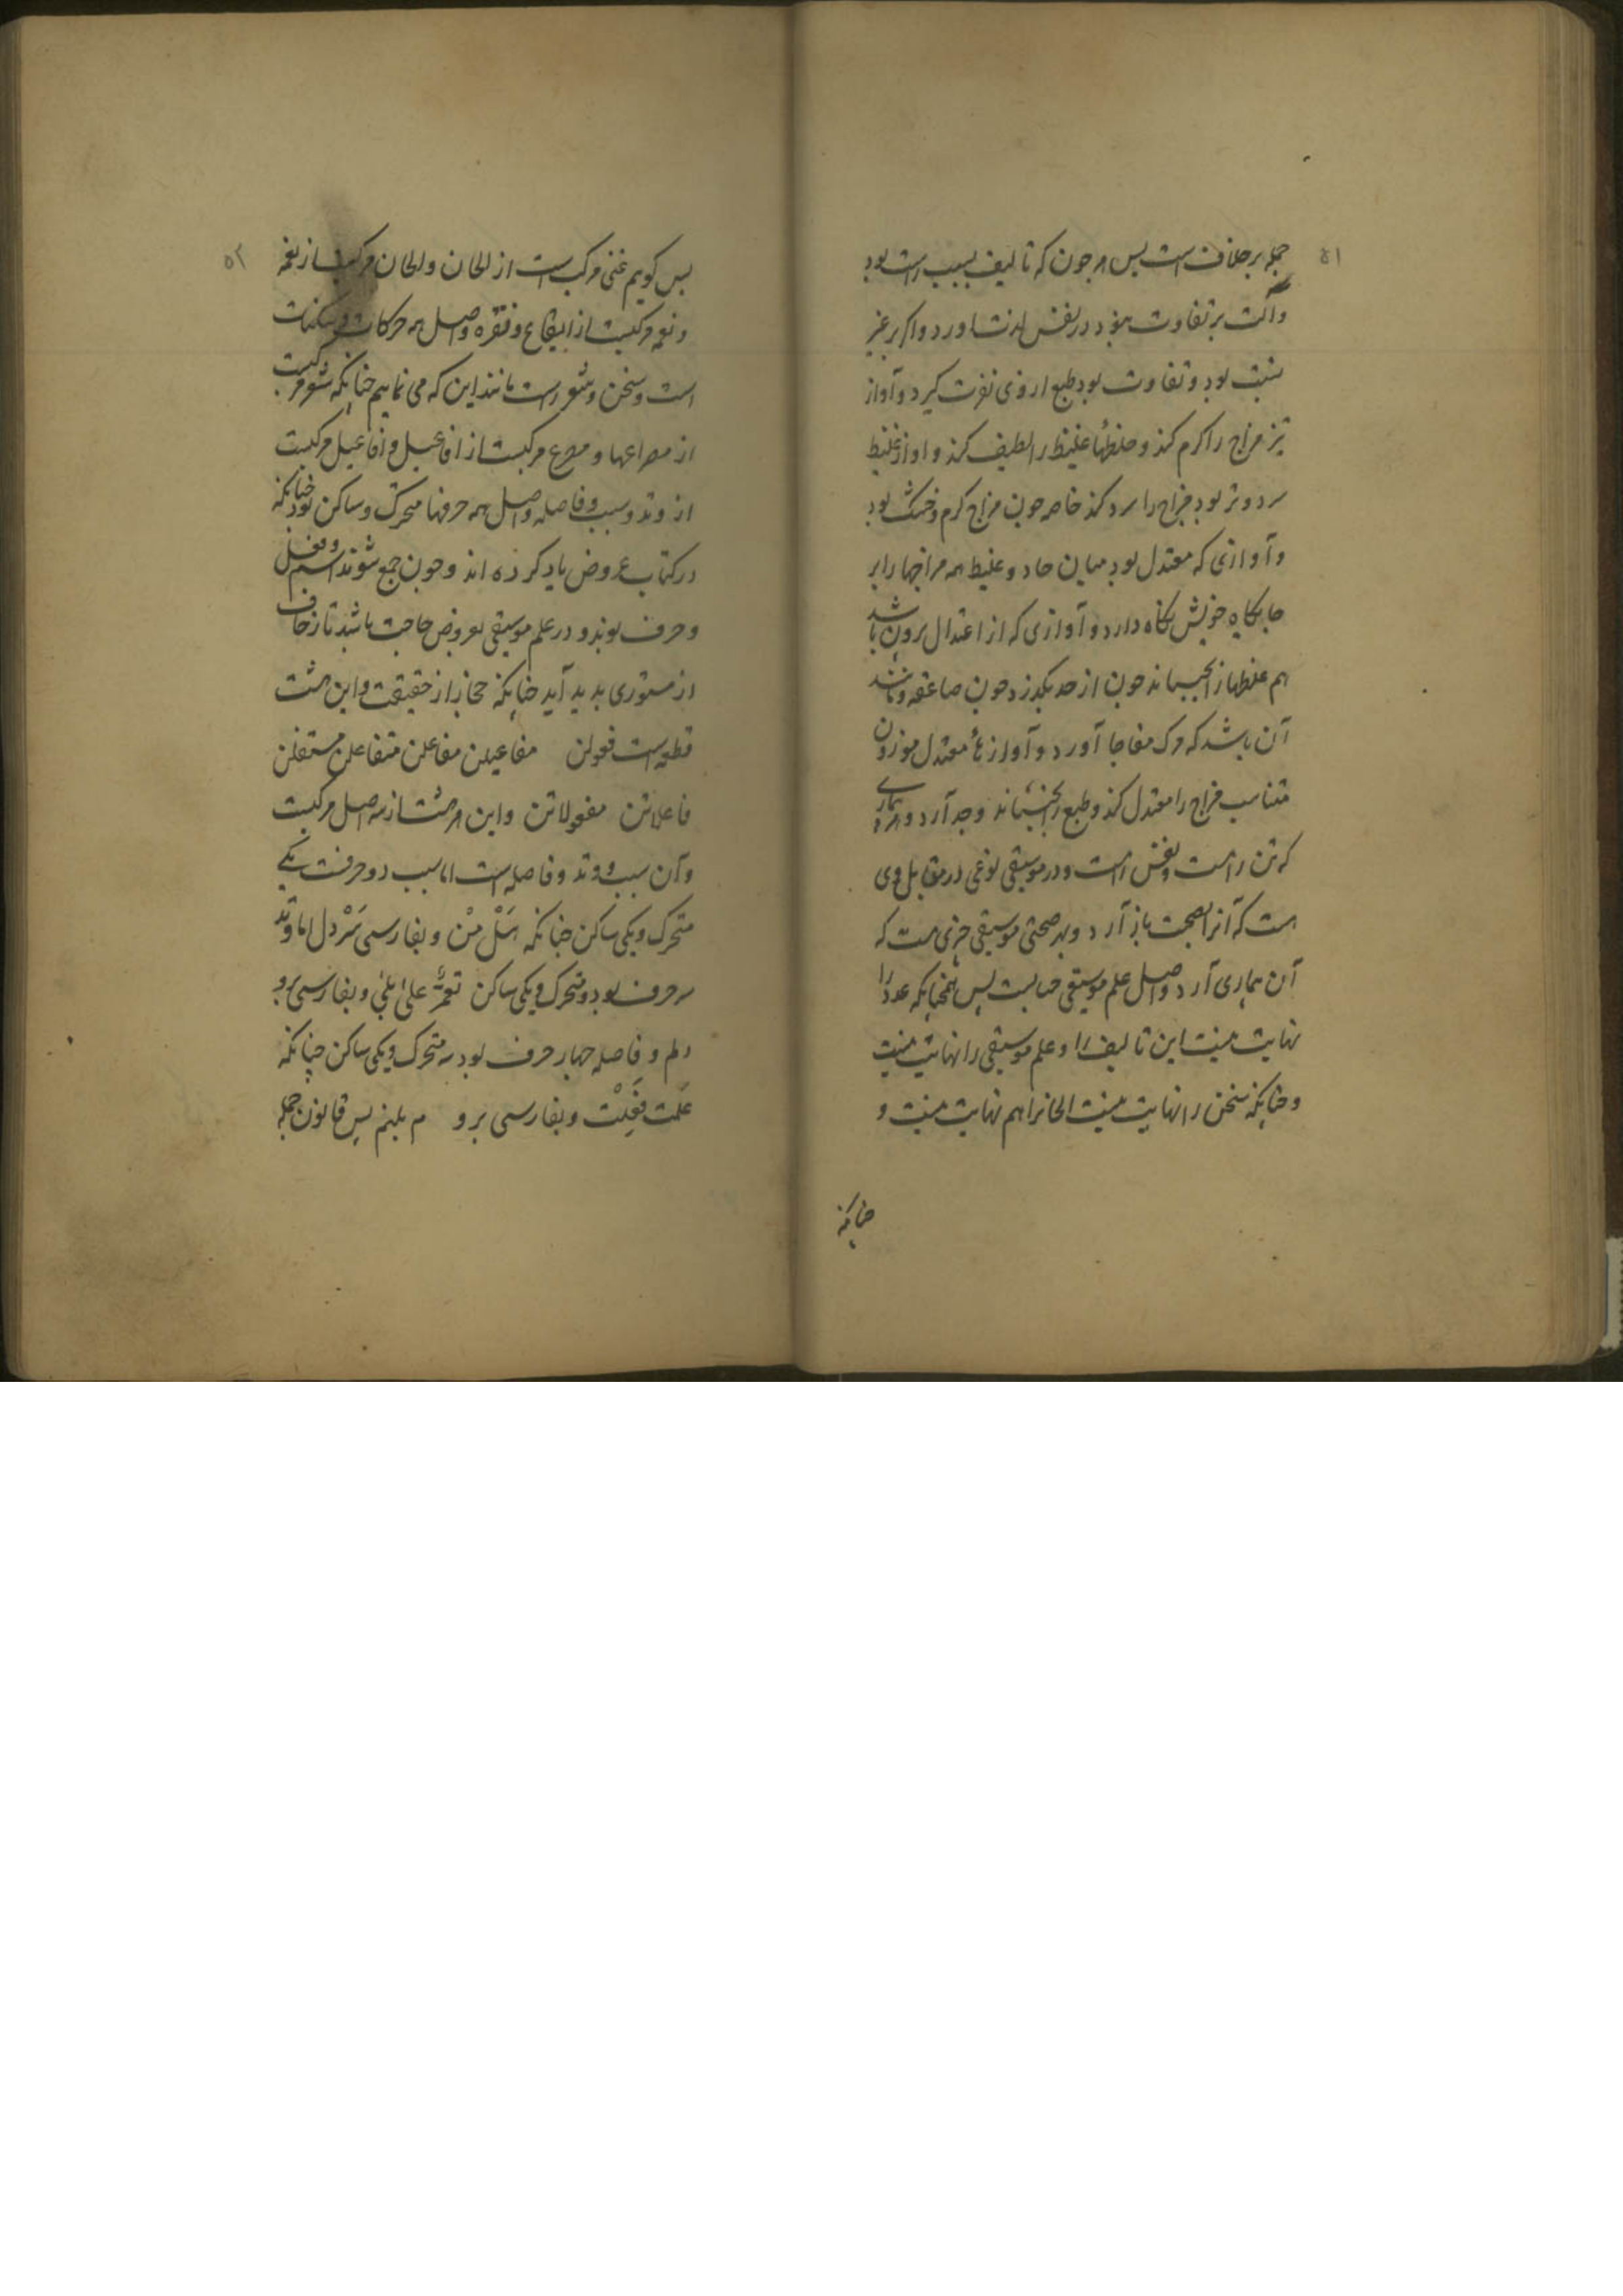 جمله برخلاف است پس هر چون که تالیف بسبب راست بود
وآلت بر تفاوت نبود در نفس لذت آورد واکر بر غیر
نسبت بود و تفاوت بود طبع از وی نفرت کیرد و آواز
تیز مزاج را کرم کند و خلطهاء غلیظ را لطیف کند و اواز غلیظ
سرد و تر بود مزاج را سرد کند خاصه چون مزاج کرم و خشک بود
و آوازی که معتدل بود میان حاد و غلیظ همه مزاجها را بر
جایکاه خویش نکاه دارد و آوازی که از اعتدال برون باشد
هم غلطها از بجنباند چون از حد بکذرد چون صاعقه و مانند
آن باشد که مرک مفاجا آورد و آوازهاء معتدل موزون
متناسب مزاج را معتدل کند و طبع را بجنباند وجد آرد و هر بیماری
که تن راست و نفس راست و در موسیقی نوعی در مقابل وی
هست که آنرا بصحت باز آرد و بهر صحتی موسیقی چیزی هست که
آن بیماری آرد و اصل علم موسیقی حسابست پس همچنانکه عدد را
نهایت نیست این تالیف را و علم موسیقی را نهایت نیست
و چنانکه سخن را نهایت نیست الحانرا هم نهایت نیست و
چنانکه
٥١
پس کویم غنی مرکب است از الحان و الحان مرکبست از نغمه
و نغمه مرکبست از ایقاع و نقره و اصل همه حرکات و سکنات
است و سخن و شعر راست مانند این که می نماییم چنانکه شعر مرکبست
از مصراعها و مصرع مرکبست از افاعیل و افاعیل مرکبست
از وتد و سبب و فاصله و اصل همه حرفها متحرک و ساکن بود چنانکه
در کتاب عروض یاد کرده اند و چون جمع شوند اسم و فعل
و حرف بوند و در علم موسیقی بعروض حاجت باشد تا زحاف
از مستوری بدید آید چنانکه مجاز از حقیقت و این هشت
قطعه است فعولن مفاعیلن مفاعلن متفاعلن مستفعلن
فاعلاتن مفعولاتن و این هر هشت از سه اصل مرکبست
و آن سبب و وتد و فاصله است اما سبب دو حرفست یکی
متحرک و یکی ساکن چنانکه سَلْ مِنْ و بفارسی سَرْ دل اما وتد
سه حرف بود دو متحرک و یکی ساکن نعم علی بلی و بفارسی برو
دلم و فاصله چهار حرف بود سه متحرک و یکی ساکن چنانکه
غَلَبَت فَعَلَتْ و بفارسی برو م بلبنم پس قانون جمله
٥٢